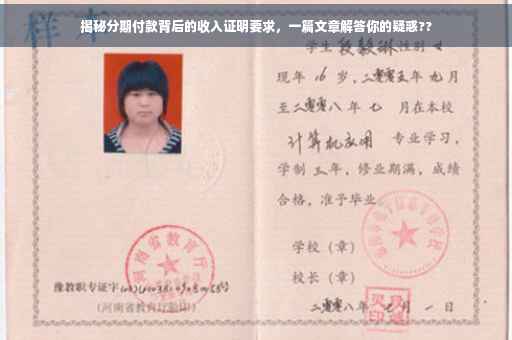 揭秘分期付款背后的收入证明要求，一篇文章解答你的疑惑??
样本
学生段毅琳性别女
现年16岁，二零零五年九月
至二零零八年七月在本校
计算机应用 专业学习，
学制三年，修业期满，成绩
合格，准予毕业。
学校（章）
校长（章）
二零零八年七月一日
河南省教育厅
豫教职专证字
（河南省教育厅验印）